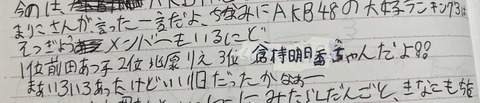 今のは
まりこさんが言った一言だよ ちなみにAKB48の大好きランキング3は
そっぎょうメンバーもいるけど
1位前田あつ子2位 りえ3位 倉持明日香ちゃんだよ??
まぁいろいろあったけどいい1日だったかなぁー
みたらしだんごと、きなこも